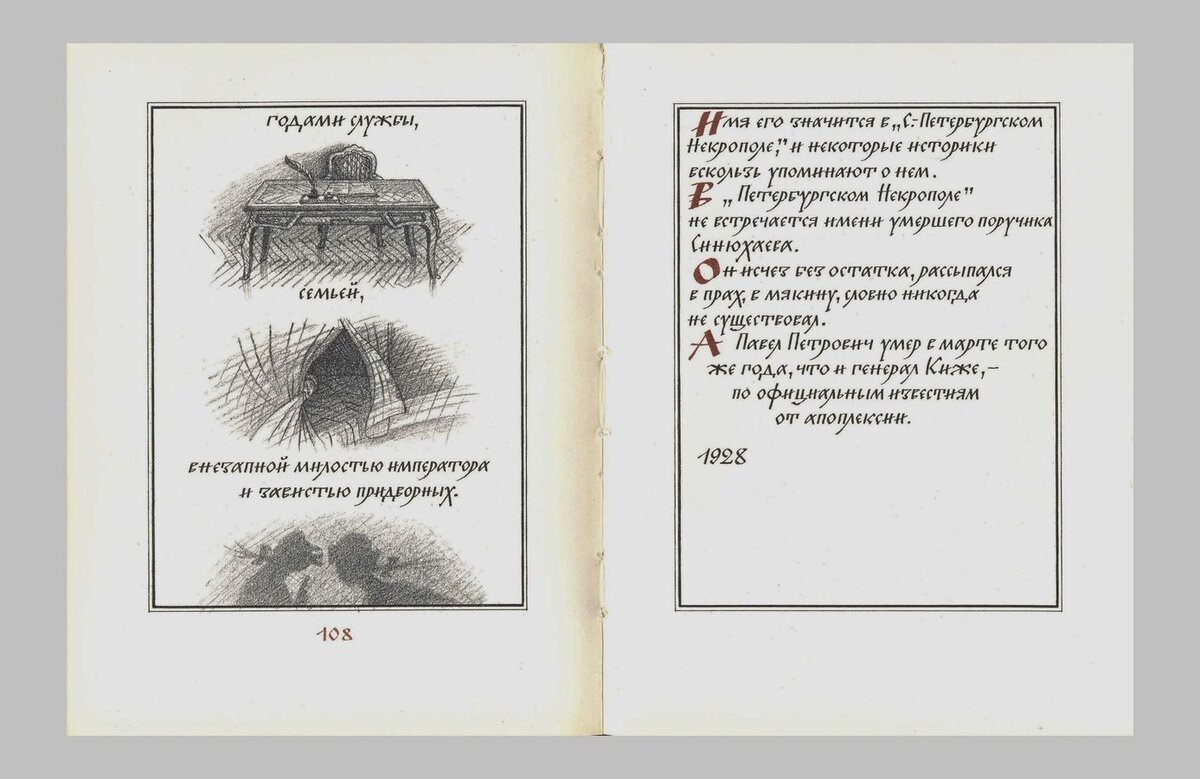 годами службы,
семьей,
внезапной милостью императора
и завистью придворных.
108
Имя его значится в „С.-Петербургском
Некрополе," и некоторые историки
вскользь упоминают о нем.
В „Петербургском Некрополе"
не встречается имени умершего поручика
Синюхаева.
Он исчез без остатка, рассыпался
в прах, в мякину, словно никогда
не существовал.
А Павел Петрович умер в марте того
же года, что и генерал Киже, –
по официальным известиям
от апоплексии.
1928